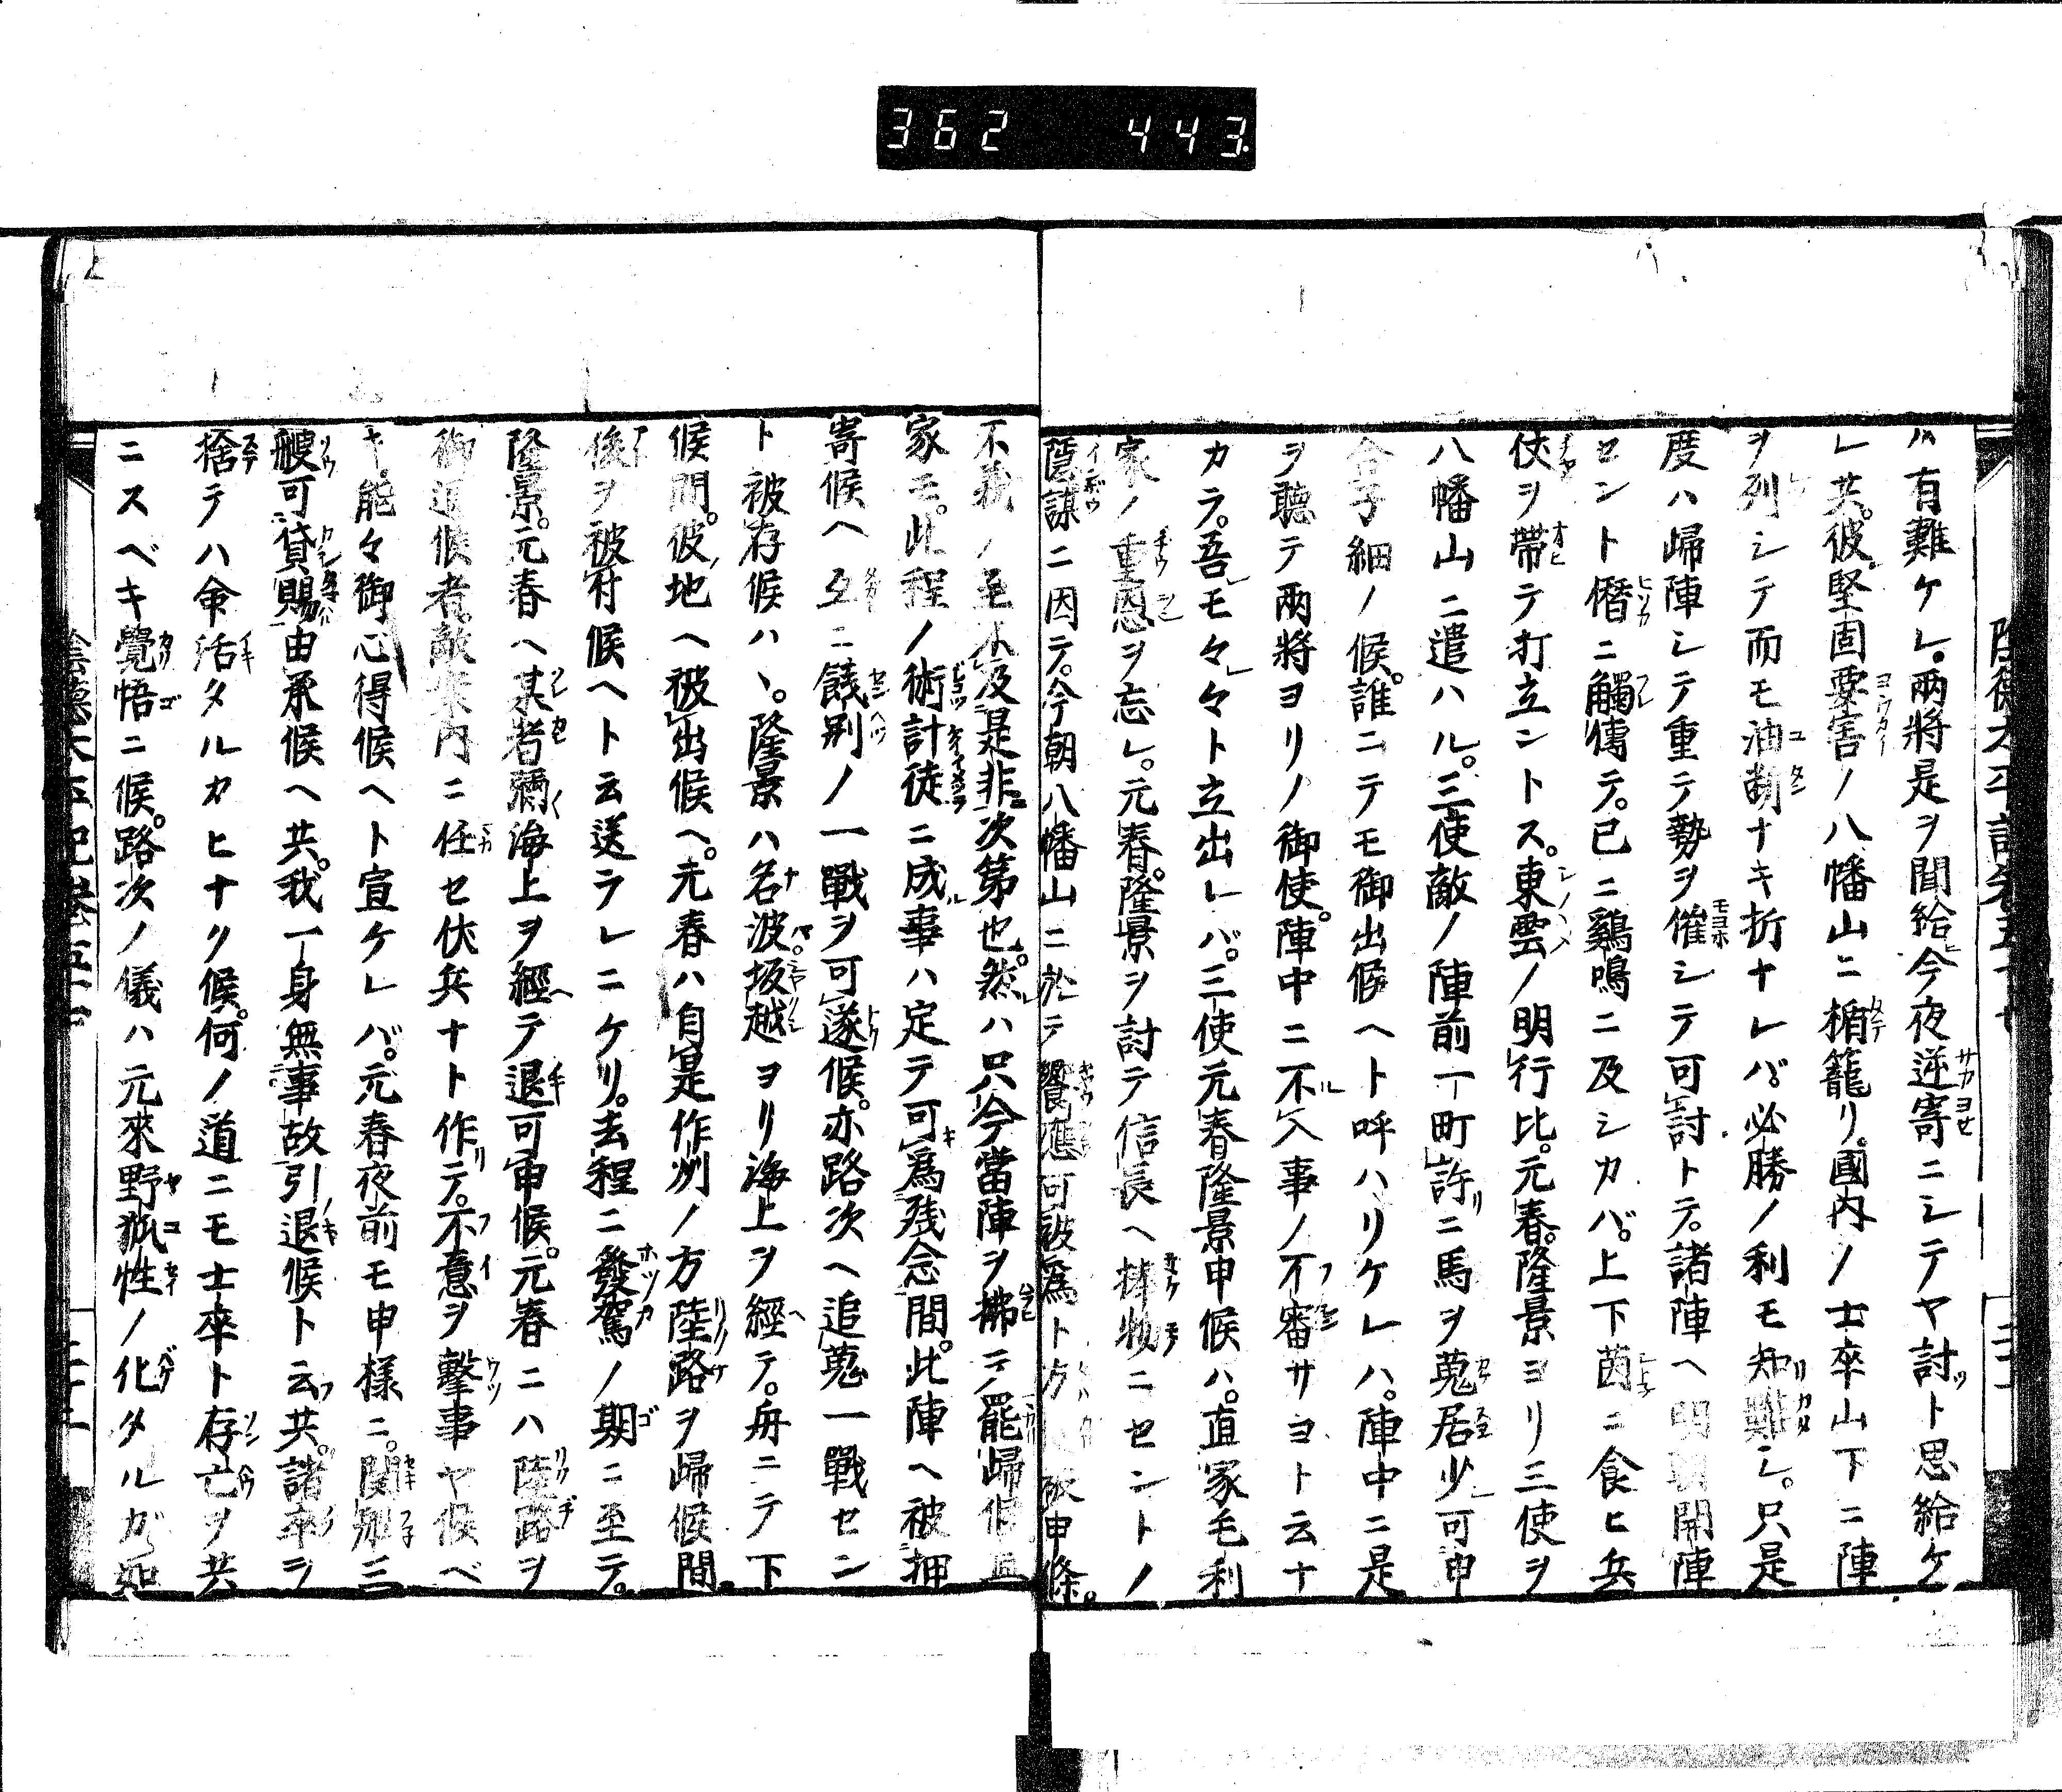 362 443.
ハ有難ケレ。兩將是ヲ聞給ヒ今夜逆寄ニシテヤ討ト思給ケ
レ共。彼堅固要害ノ八幡山ニ楯籠リ。國内ノ士卒山下ニ陣
ヲ列シテ而モ油斷ナキ折ナレバ。必勝ノ利モ知難シ。只是
度ハ歸陣シテ重テ勢ヲ催シテ可討トテ。諸陣ヘ明朝開陣
セント僭ニ觸傳テ。已ニ鷄鳴ニ及シカバ。上下茵ニ食ヒ兵
伎ヲ帶テ打立ントス。東雲ノ明行比。元春。隆景ヨリ三使ヲ
八幡山ニ遣ハル。三使敵ノ陣前一町許ニ馬ヲ蒐居少可申
合子細ノ候。誰ニテモ御出候ヘト呼ハリケレハ。陣中ニ是
ヲ聽テ兩將ヨリノ御使。陣中ニ不入事ノ不審サヨト云ナ
カラ。吾モ々々ト立出レバ。三使元春隆景申候ハ。直家毛利
家ノ重恩ヲ忘レ。元春。隆景ヲ討テ信長ヘ捧物ニセントノ
隱謀ニ因テ。今朝八幡山ニ於テ饗應可被爲ト 被申條。
不義ノ至不及是非次第也。然ハ只今當陣ヲ拂テ罷歸候直
家モ。此程ノ術計徒ニ成事ハ定テ可爲殘念間。此陣ヘ被押
寄候ヘ互ニ餞別ノ一戰ヲ可遂候。亦路次ヘ追蒐一戰セン
ト被存候ハヽ。隆景ハ名波。坂越ヨリ海上ヲ經テ。舟ニテ下
候間。彼地ヘ被出候ヘ。元春ハ自是作州ノ方陸路ヲ歸候間。
後ヲ被付候ヘト云送ラレニケリ。去程ニ發駕ノ期ニ至テ。
隆景。元春ヘ某者彌海上ヲ經テ退可申候。元春ニハ陸路ヲ
御退候者。敵案内ニ任セ伏兵ナト作テ。不意ヲ擊事ヤ候ベ
キ。能々御心得候ヘト宣ケレバ。元春夜前モ申樣ニ。関船三
艘可貸賜由承候ヘ共。我一身無事故引退候ト云共。諸卒ヲ
捨テハ命活タルカヒナク候。何ノ道ニモ士卒ト存亡ヲ共
ニスベキ覺悟ニ候。路次ノ儀ハ元來野狐性ノ化タルガ如